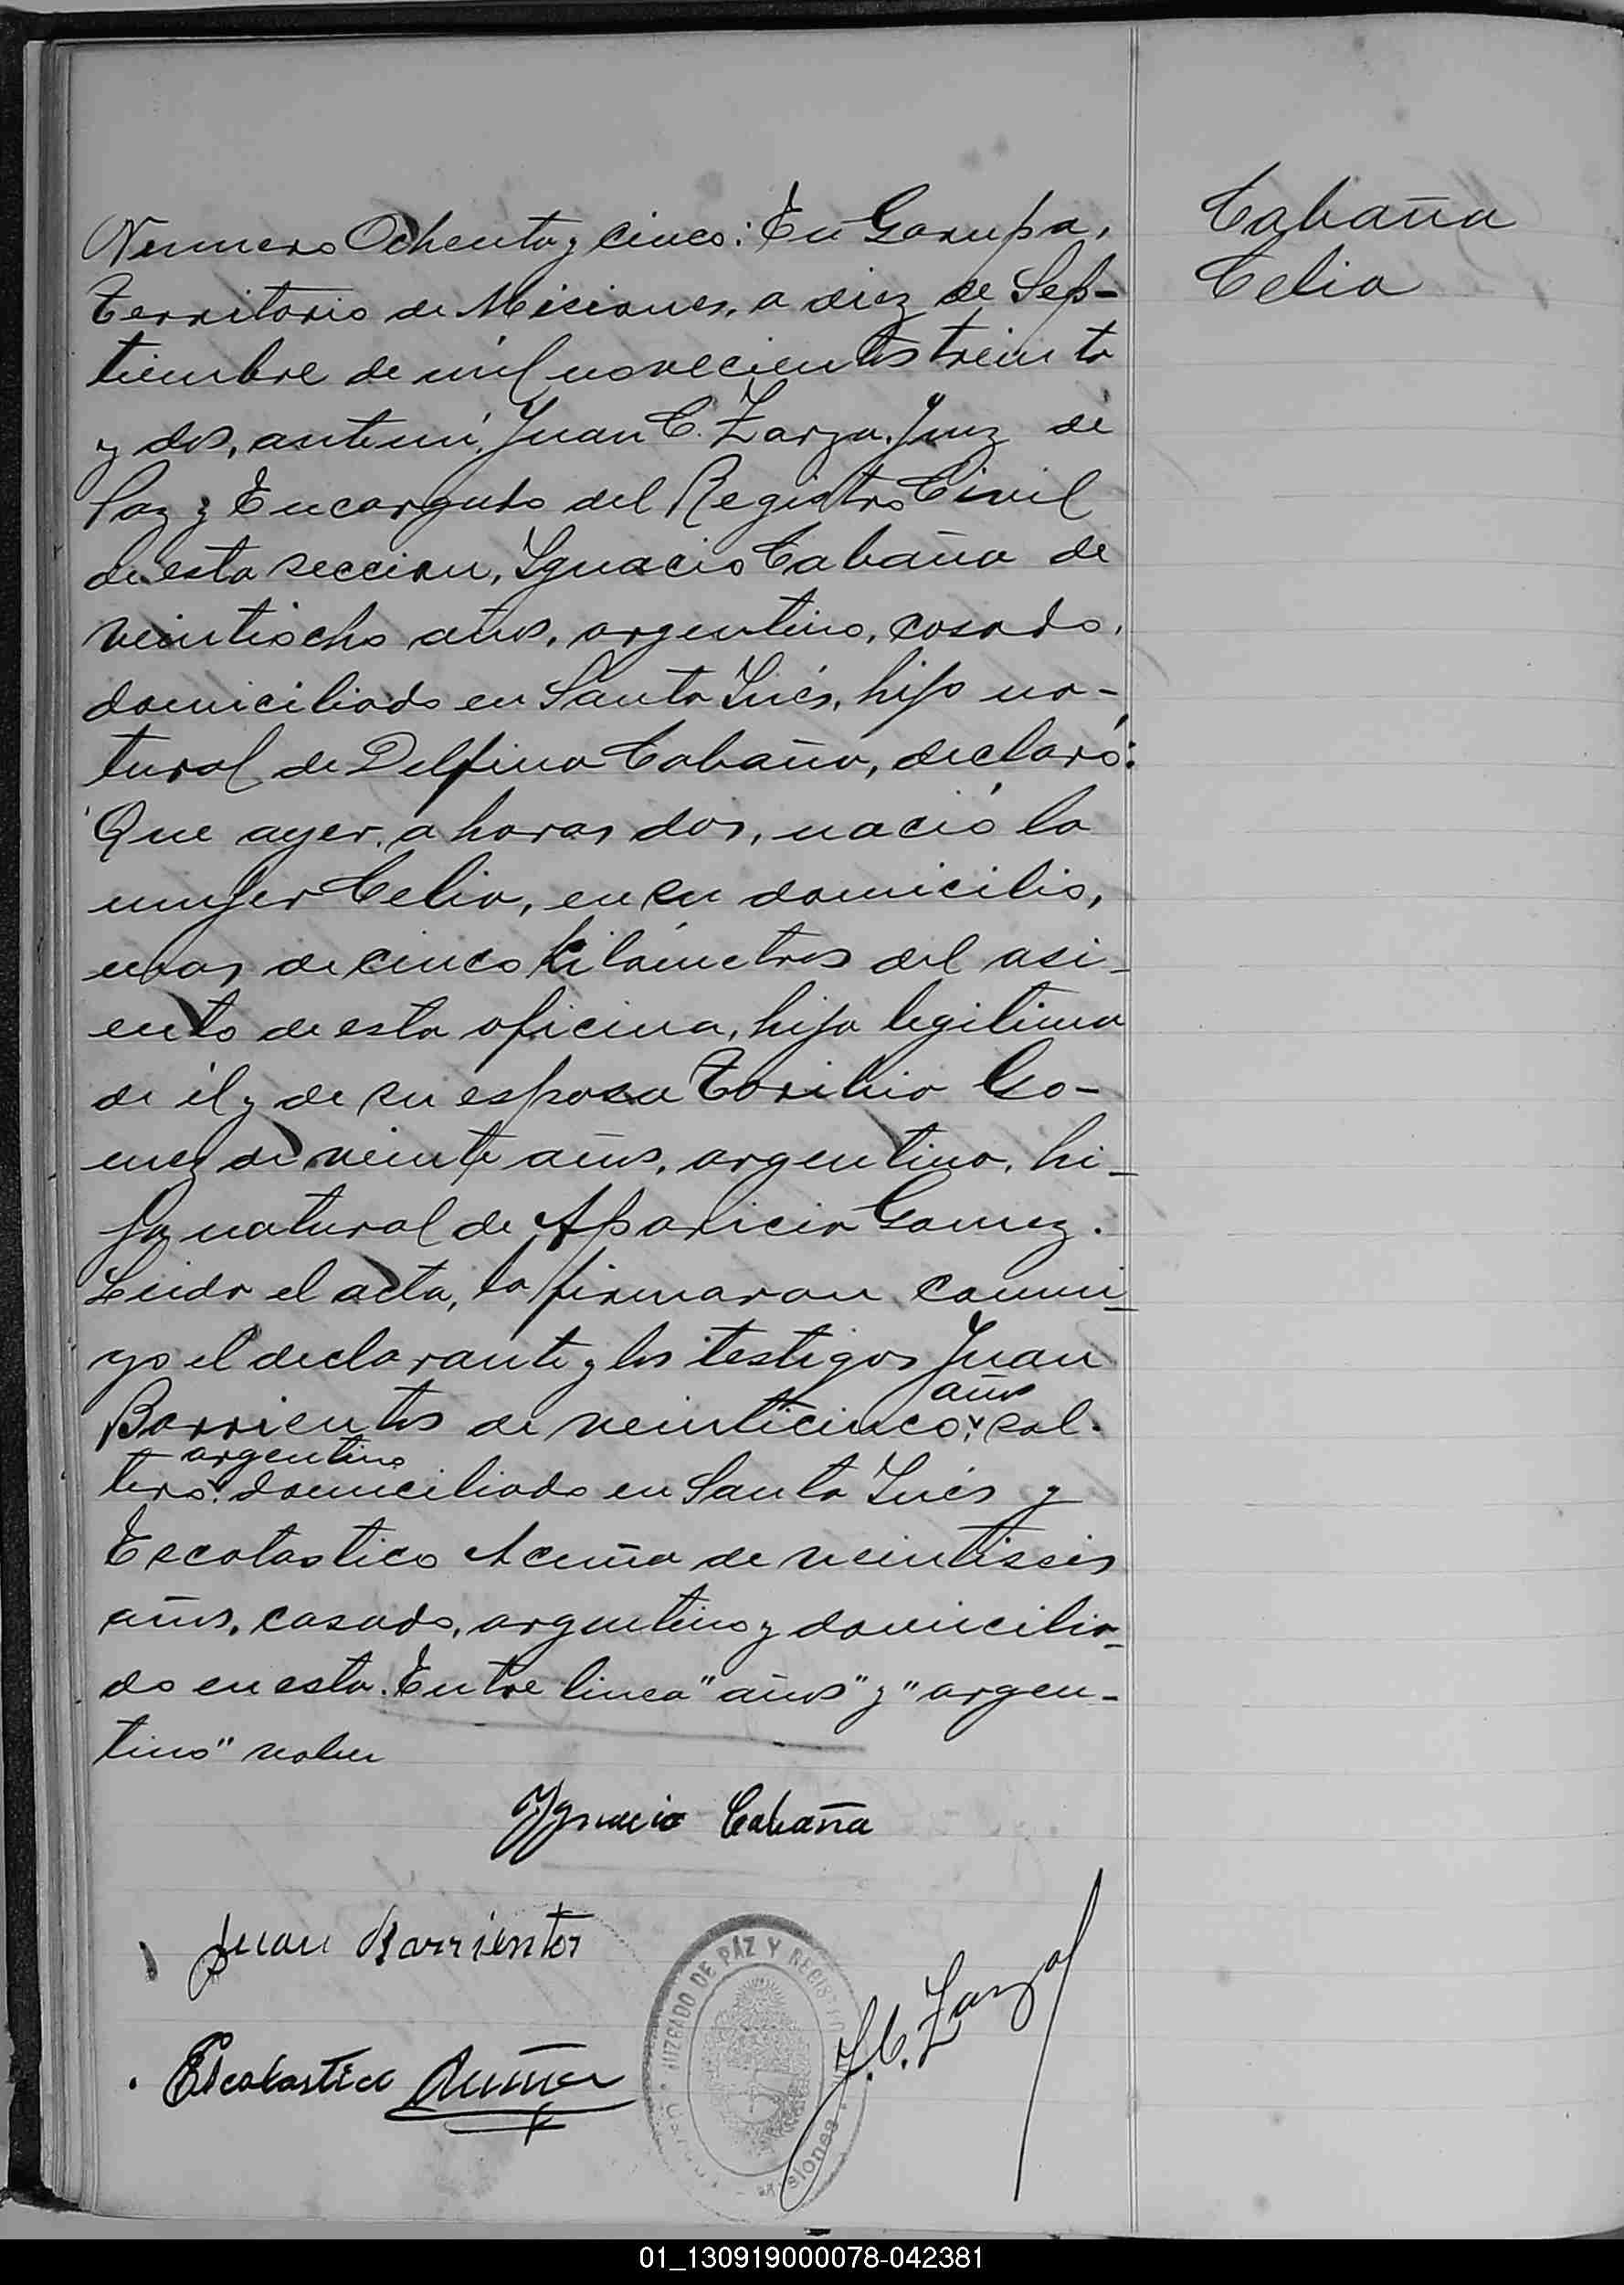 Cabaña
Celia
Numero Ochenta y cinco: En Garupa,
Territorio de Misiones, a diez de Sep-
tiembre de mil novecientos treinta
y dos, ante mí, Juan C. Zarza, Juez de
Paz y Encargado del Registro Civil
de esta seccion, Ignacio Cabaña de
veintiocho años, argentino, casado,
domiciliado en Santa Inés, hijo na-
tural de Delfina Cabaña, declaró:
Que ayer, a horas dos, nació la
mujer Celia, en su domicilio,
mas de cinco kilómetros del asi-
ento de esta oficina, hija legitima
de él y de su esposa Toribia Go-
mez de veinte años, argentina, hi-
ja natural de Aparicia Gomez.
Leida el acta, la firmaron conmi-
go el declarante y los testigos Juan
Barrientos de veinticinco años, sol-
tero, argentino domiciliado en Santa Inés y
Escolastico Acuña de veintiseis
años, casado, argentino y domicilia-
do en esta. Entre linea "años" y "argen-
tino" valen
Ygnacio Cabaña
Juan Barrientos
Escolastico Acuña
J. C. Zarza
JUZGADO DE PAZ Y REGISTRO
Misiones
01_130919000078-042381